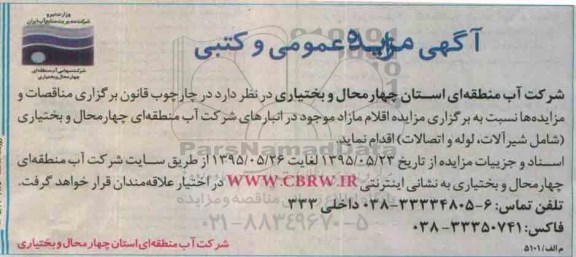 وزارت نیرو
شرکت مدیریت منابع آب ایران
شرکت سهامی آب منطقه‌ای
چهارمحال و بختیاری
آگهی مزایده عمومی و کتبی
شرکت آب منطقه‌ای استان چهارمحال و بختیاری در نظر دارد در چارچوب قانون برگزاری مناقصات و
مزایده‌ها نسبت به برگزاری مزایده اقلام مازاد موجود در انبارهای شرکت آب منطقه‌ای چهارمحال و بختیاری
(شامل شیرآلات، لوله و اتصالات) اقدام نماید
اسناد و جزییات مزایده از تاریخ ۱۳۹۵/۰۵/۲۳ لغایت ۱۳۹۵/۰۵/۲۶ از طریق سایت شرکت آب منطقه‌ای
چهارمحال و بختیاری به نشانی اینترنتی WWW.CBRW.IR در اختیار علاقه‌مندان قرار خواهد گرفت.
تلفن تماس: ۶-۳۳۳۳۴۸۰۵-۰۳۸ داخلی ۳۳۳
فاکس: ۳۳۳۵۰۷۴۱-۰۳۸
شرکت آب منطقه‌ای استان چهارمحال و بختیاری
م الف/۵۱۰۱
ParsNamadData
۰۲۱-۸۸۳۴۹۶۷۰-۵